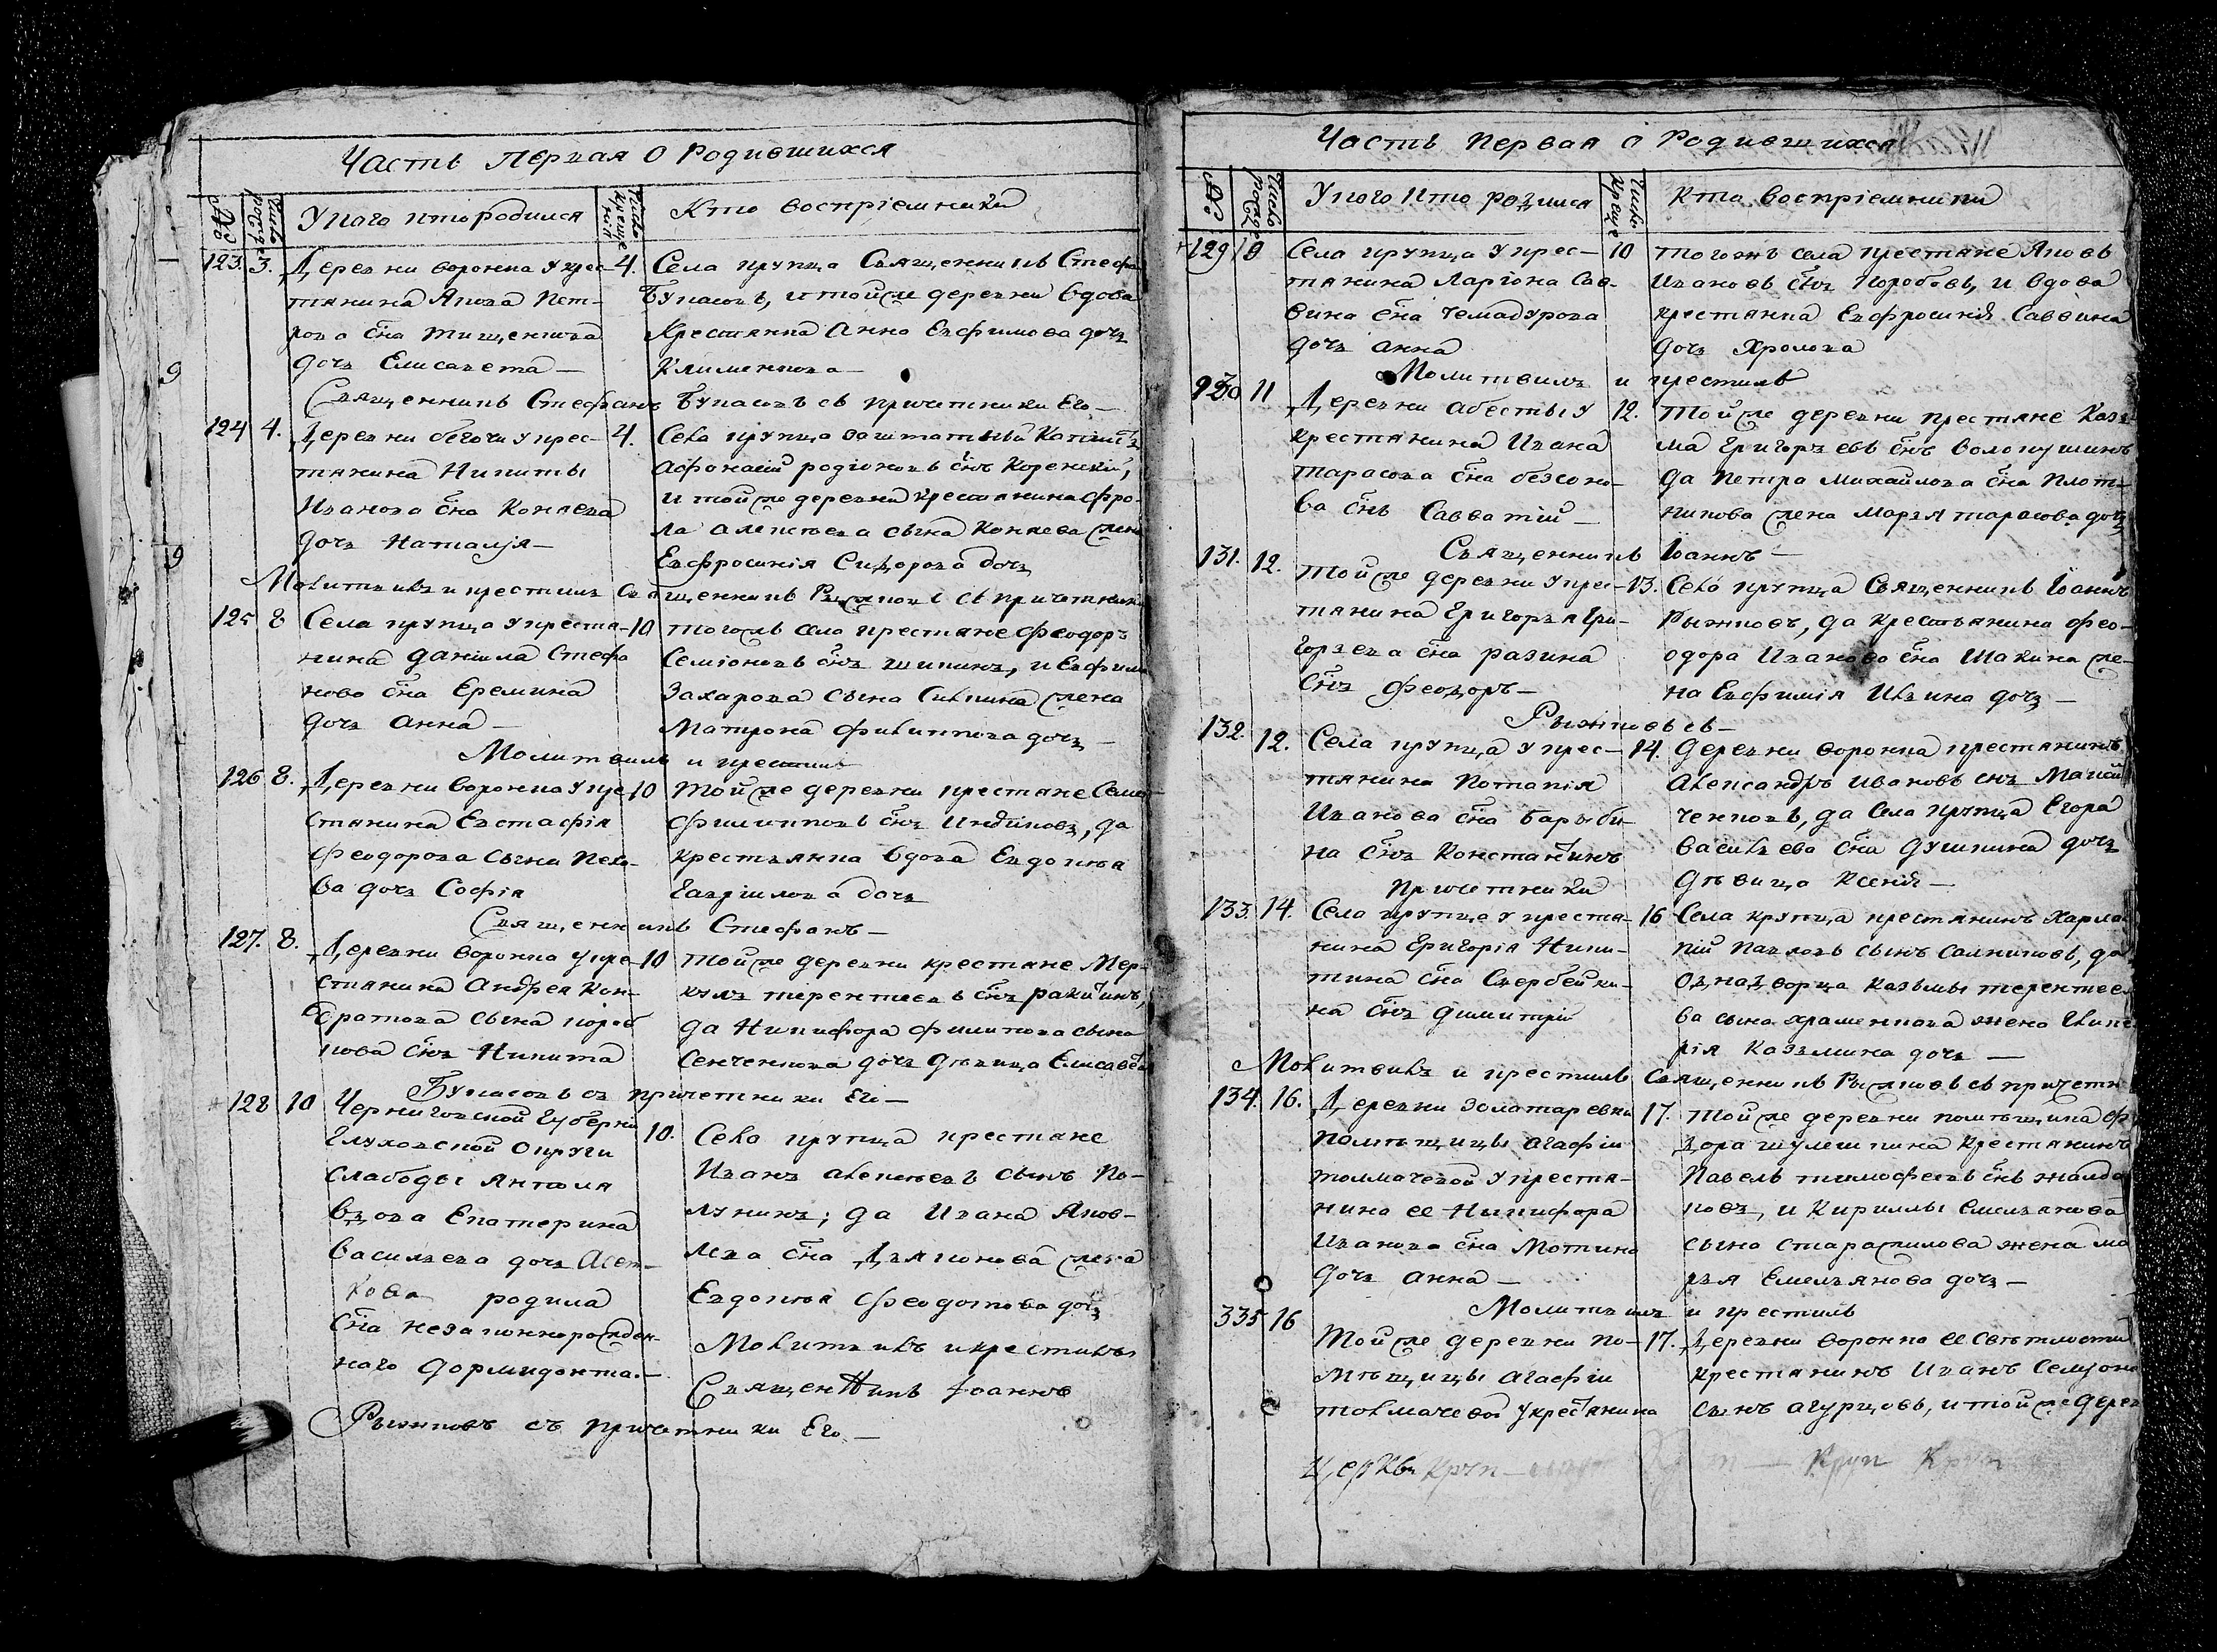 Часть первая о Родившихся
№
Число рожде
У кого кто родился
Число креще
ния
Кто воспріемники
123. 3. Деревни воронка у крес-
тянина Якова пет-
рова сна тищенкова
дочь Елисавета —
4. Села крупца Священникъ Стефа
Букасовъ, и той же деревни вдова
Крестянка Анна Евфимова дочь
Клименкова —
Священникъ Стефанъ Букасовъ съ причетники Его —
124 4. Деревни бегочи у крес-
тянина Никиты
Иванова сна Коняева
дочь Наталія —
4. Села крупца заштатный
Афонасій родіоновъ снъ Коренскій,
и той же деревни крестянина фро-
ла алексѣева сына Коняева жена
Евфросинія Сидорова дочь
Молитвилъ и крестилъ Священникъ Рыжковъ съ причетники
125 8 Села крупца у крестя-
нина даніила Стефа
ново сна Еремина
дочь анна —
10 того жъ села крестяне феодоръ
Семіоновъ снъ шикинъ, и Евфима
Захарова сына Силкина жена
Матрона филиппова дочь —
Молитвилъ и крестилъ
126 8. Деревни воронка у кре
стянина Евстафія
Феодорова сына пехо-
ва дочь Софія
10 той же деревни крестяне Семе
филипповъ снъ Индиковъ, да
крестьянка вдова Евдокѣя
Гавріилова дочь
Священникъ Стефанъ —
127. 8. Деревни воронка у кре-
стянина Андрея Кон-
дратова сына короб
кова снъ Никита
10 той же деревни крестяне Мер-
кулъ терентиевъ снъ ракитинъ,
да Никифора филипова сына
Сенченкова дочь дѣвица Елисавѣ
Букасовъ съ причетники Его —
128 10 Черниговской Губерни
Глуховской округи
Слабоды Янполя
вдова Екатерина
Васильева дочь
родила
сна незаконнорожден-
наго дормидонта. —
10. Села крупца крестяне
Иванъ алексѣевъ сынъ По-
лунинъ; да Ивана Яков-
лева сна Дьяконова жена
Евдокѣя феодотова дочь
Молитвилъ и крестилъ
Священникъ Іоаннъ
Рыжковъ съ причетники Его —
Часть первая о Родившихся
№
Число рожде
У кого кто родился
Число Креще
Кто воспріемники
129 10 Села крупца у крес-
тянина Ларіона Сав-
вина сна Чемадурова
дочь анна
10 того жъ села крестяне Яковъ
Ивановъ снъ Коробовъ, и вдова
крестянка Евфросинія Саввина
дочь Хролова
Молитвилъ и крестилъ
130 11 Деревни абесты у
крестянина Ивана
тарасова сна безсоно-
ва снъ Савватій —
12. той же деревни крестяне Казь
ма Григорьевъ снъ волокушинъ
да петра михайлова сна плот-
никова жена марья тарасова дочь
Священникъ Іоаннъ —
131. 12. той же деревни у крес-
тянина Григорья Гри-
горьева сна разина
снъ Феодоръ —
13. Села крупца Священникъ Іоаннъ
Рыжковъ, да крестьянина фео-
одора Иванова сна Шакина же-
на Евфимія Ильина дочь —
Рыжковъ съ —
132. 12. Села крупца у крес-
тянина потапія
Иванова сна барыби-
на снъ Константинъ
14. деревни воронка крестянинъ
Александръ Ивановъ снъ
ченковъ, да села крупца Егора
васильева сна душкина дочь
дѣвица Ксенія —
причетники
133. 14. Села крупца у крестя-
нина Григорія Ники-
тина сна Щербейки-
на снъ димитрій
16 Села крупца крестянинъ Харлам
пій павловъ сынъ Салниковъ, да
однодворца казьмы терентьев
ва сына храменкова жена Глике
рія Казьмина дочь —
Молитвилъ и крестилъ Священникъ Рыжковъ съ причетн
134. 16. Деревни золотаревки
помѣщицы агафіи
толмачевой у крестя-
нина ее Никифора
Иванова сна Мотина
дочь анна —
17. той же деревни помѣщика Ф
дора шулешкина крестянинъ
Павелъ тимофеевъ снъ жалда
ковъ, и Кириллы Емельянова
сына старажилова жена ма
рья Емельянова дочь —
Молитвилъ и крестилъ
335 16 той же деревни по-
мѣщицы агафіи
толмачевой у крестянина
17. Деревни воронка ее свѣтлости
крестянинъ Иванъ Семіоно
сынъ агурцовъ, и той же дерев
Церкви Круп
Круп Круп